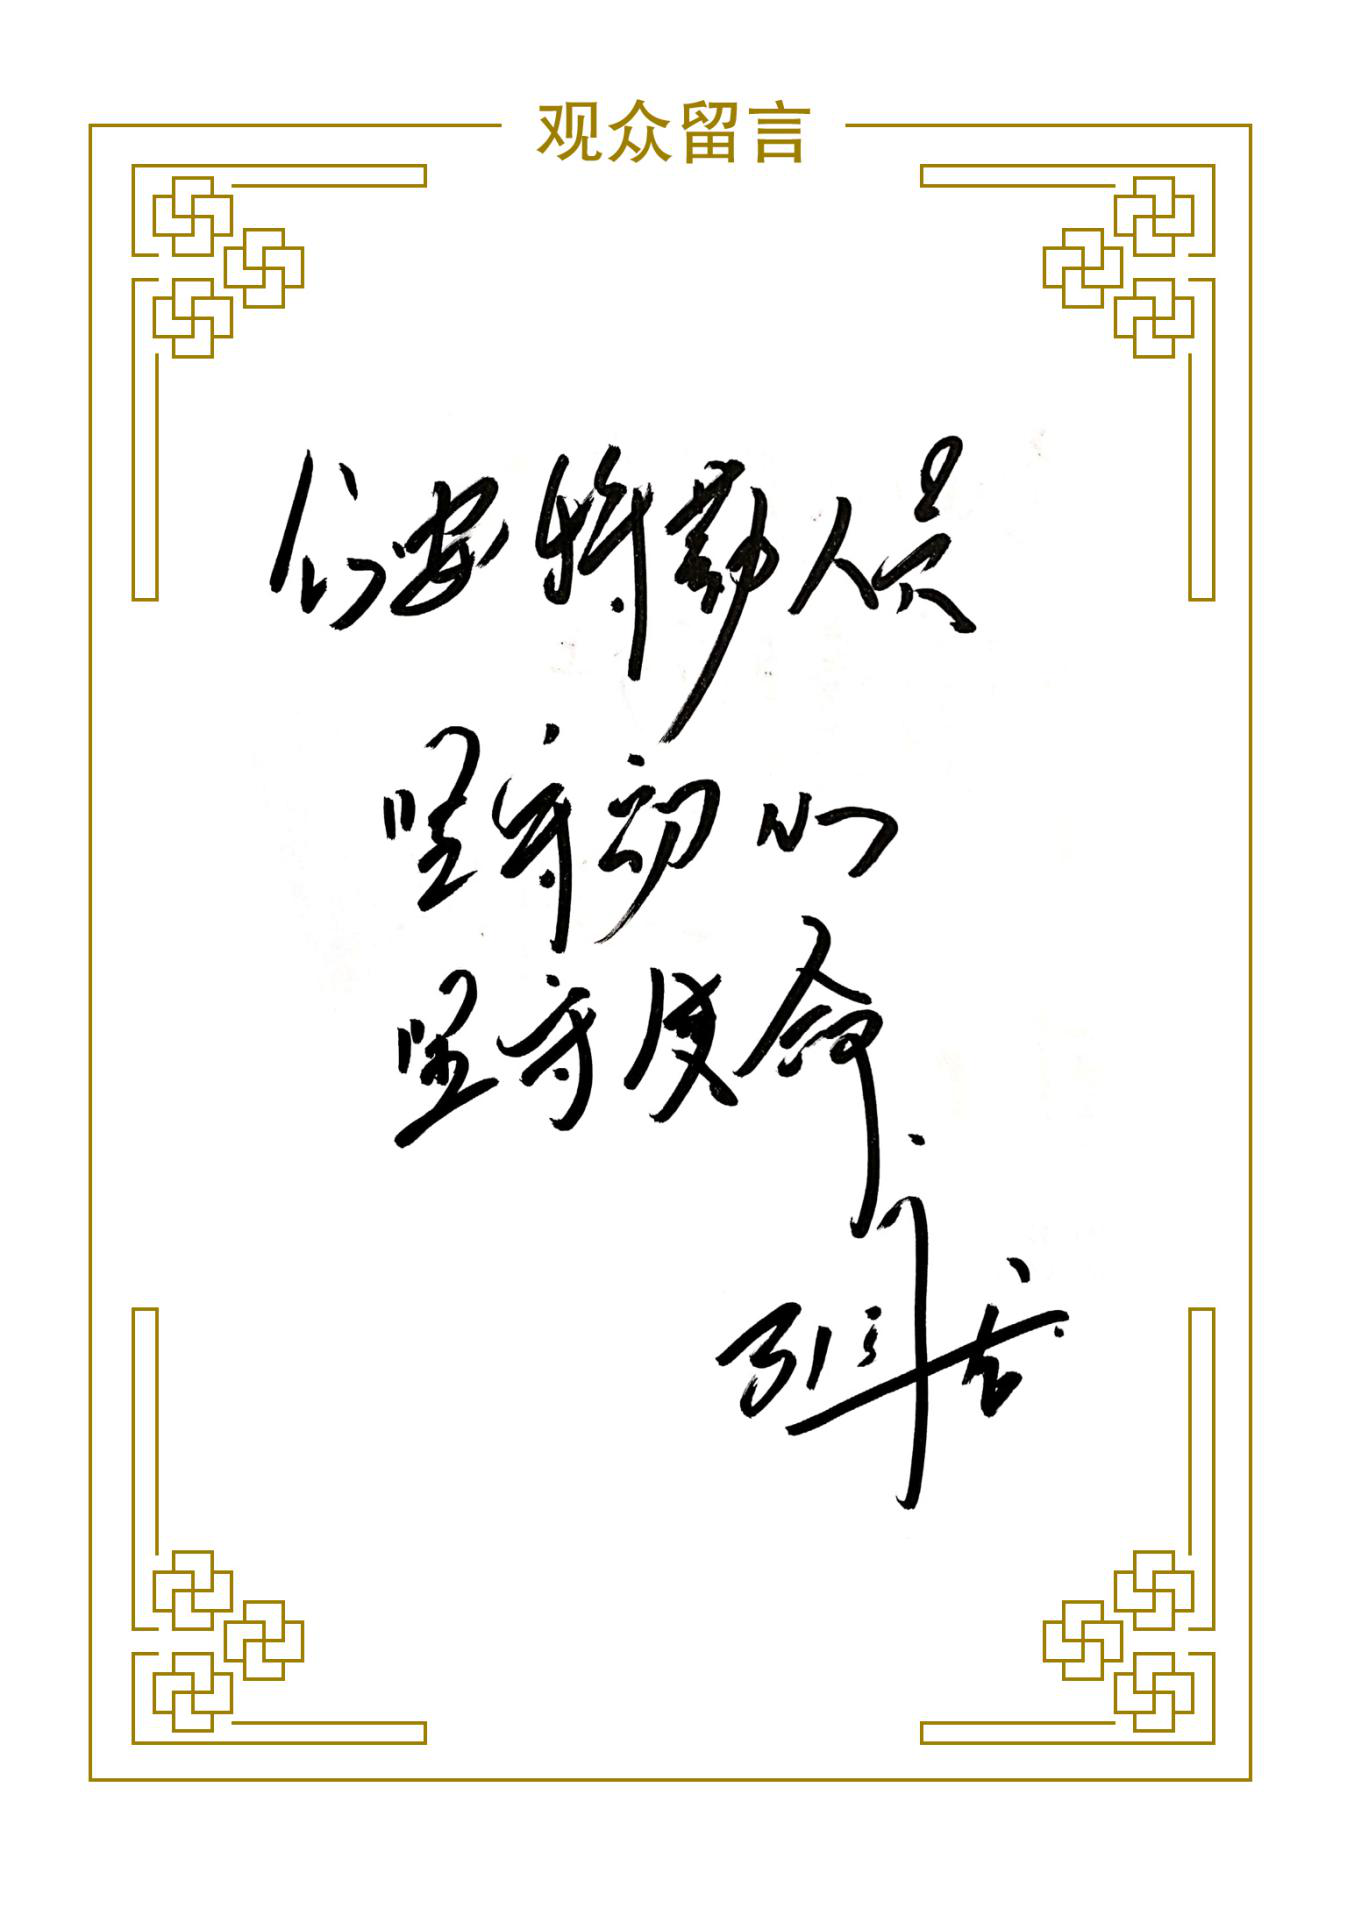 观众留言
公安特勤人员
坚守初心
坚守使命